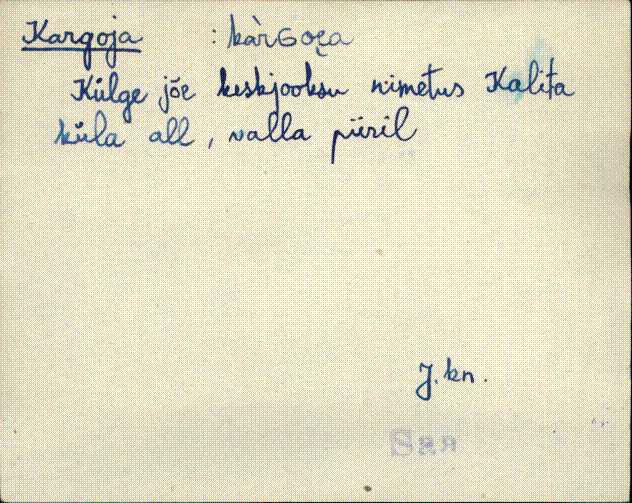 Kargoja : kàrGoe̯a
Külge jõe keskjooksu nimetus Kalita
küla all, valla piiril
J. kn.